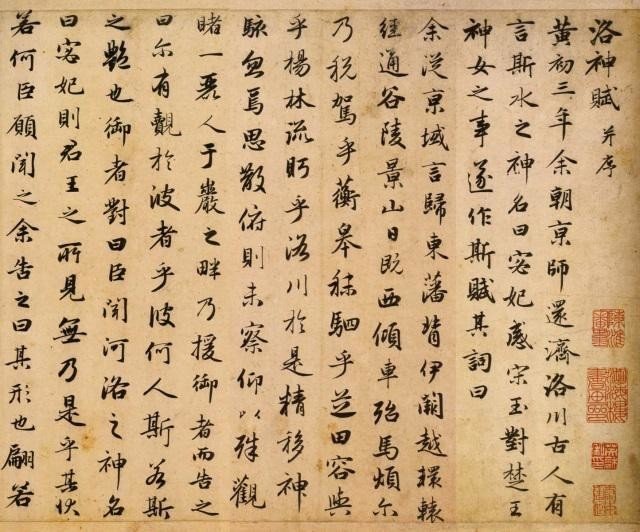 洛神賦 并序
黃初三年余朝京師還濟洛川古人有
言斯水之神名曰宓妃感宋玉對楚王
神女之事遂作斯賦其詞曰
余從京域言歸東藩背伊闕越轘轅
經通谷陵景山日既西傾車殆馬煩尔
乃稅駕乎蘅皋秣駟乎芝田容與
乎楊林流眄乎洛川於是精移神
駭忽焉思散俯則未察仰以殊觀
睹一麗人于巖之畔乃援御者而告之
曰尔有覿於彼者乎彼何人斯若斯
之艷也御者對曰臣聞河洛之神名
曰宓妃則君王之所見無乃是乎其狀
若何臣願聞之余告之曰其形也翩若